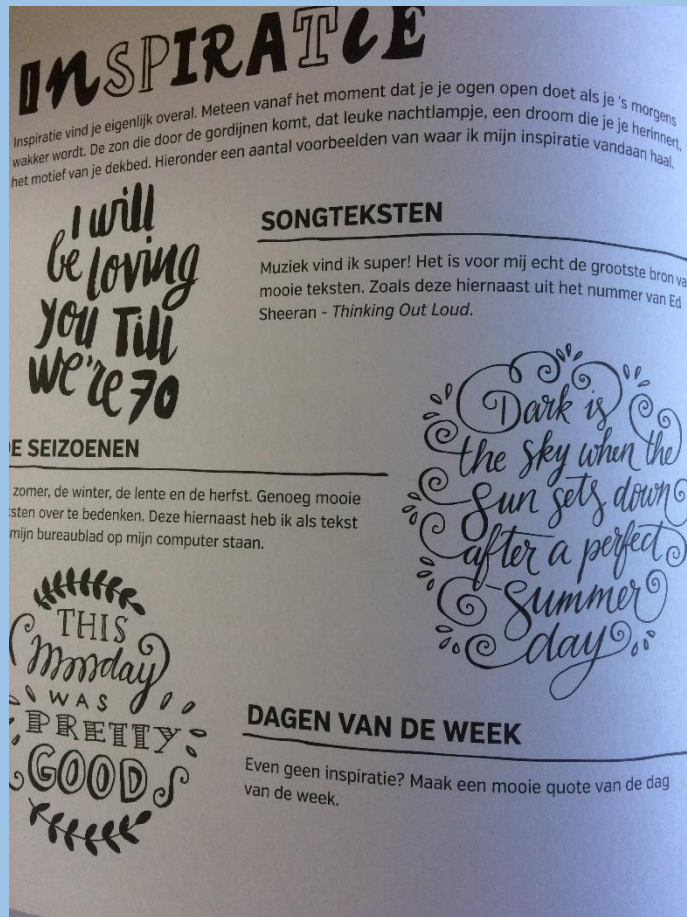 INSPIRATIE
Inspiratie vind je eigenlijk overal. Meteen vanaf het moment dat je je ogen open doet als je 's morgens
wakker wordt. De zon die door de gordijnen komt, dat leuke nachtlampje, een droom die je je herinnert,
het motief van je dekbed. Hieronder een aantal voorbeelden van waar ik mijn inspiratie vandaan haal.
I will
be loving
you Till
we're 70
SONGTEKSTEN
Muziek vind ik super! Het is voor mij echt de grootste bron va
mooie teksten. Zoals deze hiernaast uit het nummer van Ed
Sheeran - Thinking Out Loud.
E SEIZOENEN
zomer, de winter, de lente en de herfst. Genoeg mooie
ksten over te bedenken. Deze hiernaast heb ik als tekst
mijn bureaublad op mijn computer staan.
Dark is
the sky when the
sun sets down
after a perfect
summer
day
THIS
monday
WAS
PRETTY
GOOD
DAGEN VAN DE WEEK
Even geen inspiratie? Maak een mooie quote van de dag
van de week.